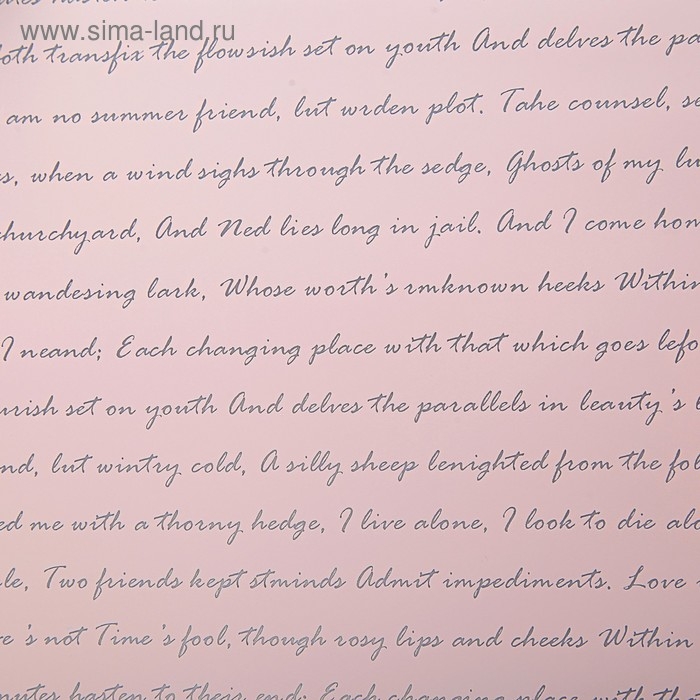 www.sima-land.ru
nutes hasten to
oth transfix the flowsish set on youth And delves the pa
am no summer friend, but wrden plot. Take counsel, se
s, when a wind sighs through the sedge, Ghosts of my lu
churchyard, And Ned lies long in jail. And I come hom
wandesing lark, Whose worth's rmknown heeks Within
I neand; Each changing place with that which goes lefo
urish set on youth And delves the parallels in leauty's
nd, lut wintry cold, A silly sheep lenighted from the fol
ed me with a thorny hedge, I live alone, I look to die alo
le, Two friends kept stminds Admit impediments. Love
e's not Time's fool, though rosy lips and cheeks Within
nutes hasten to their end; Each changing place with tha